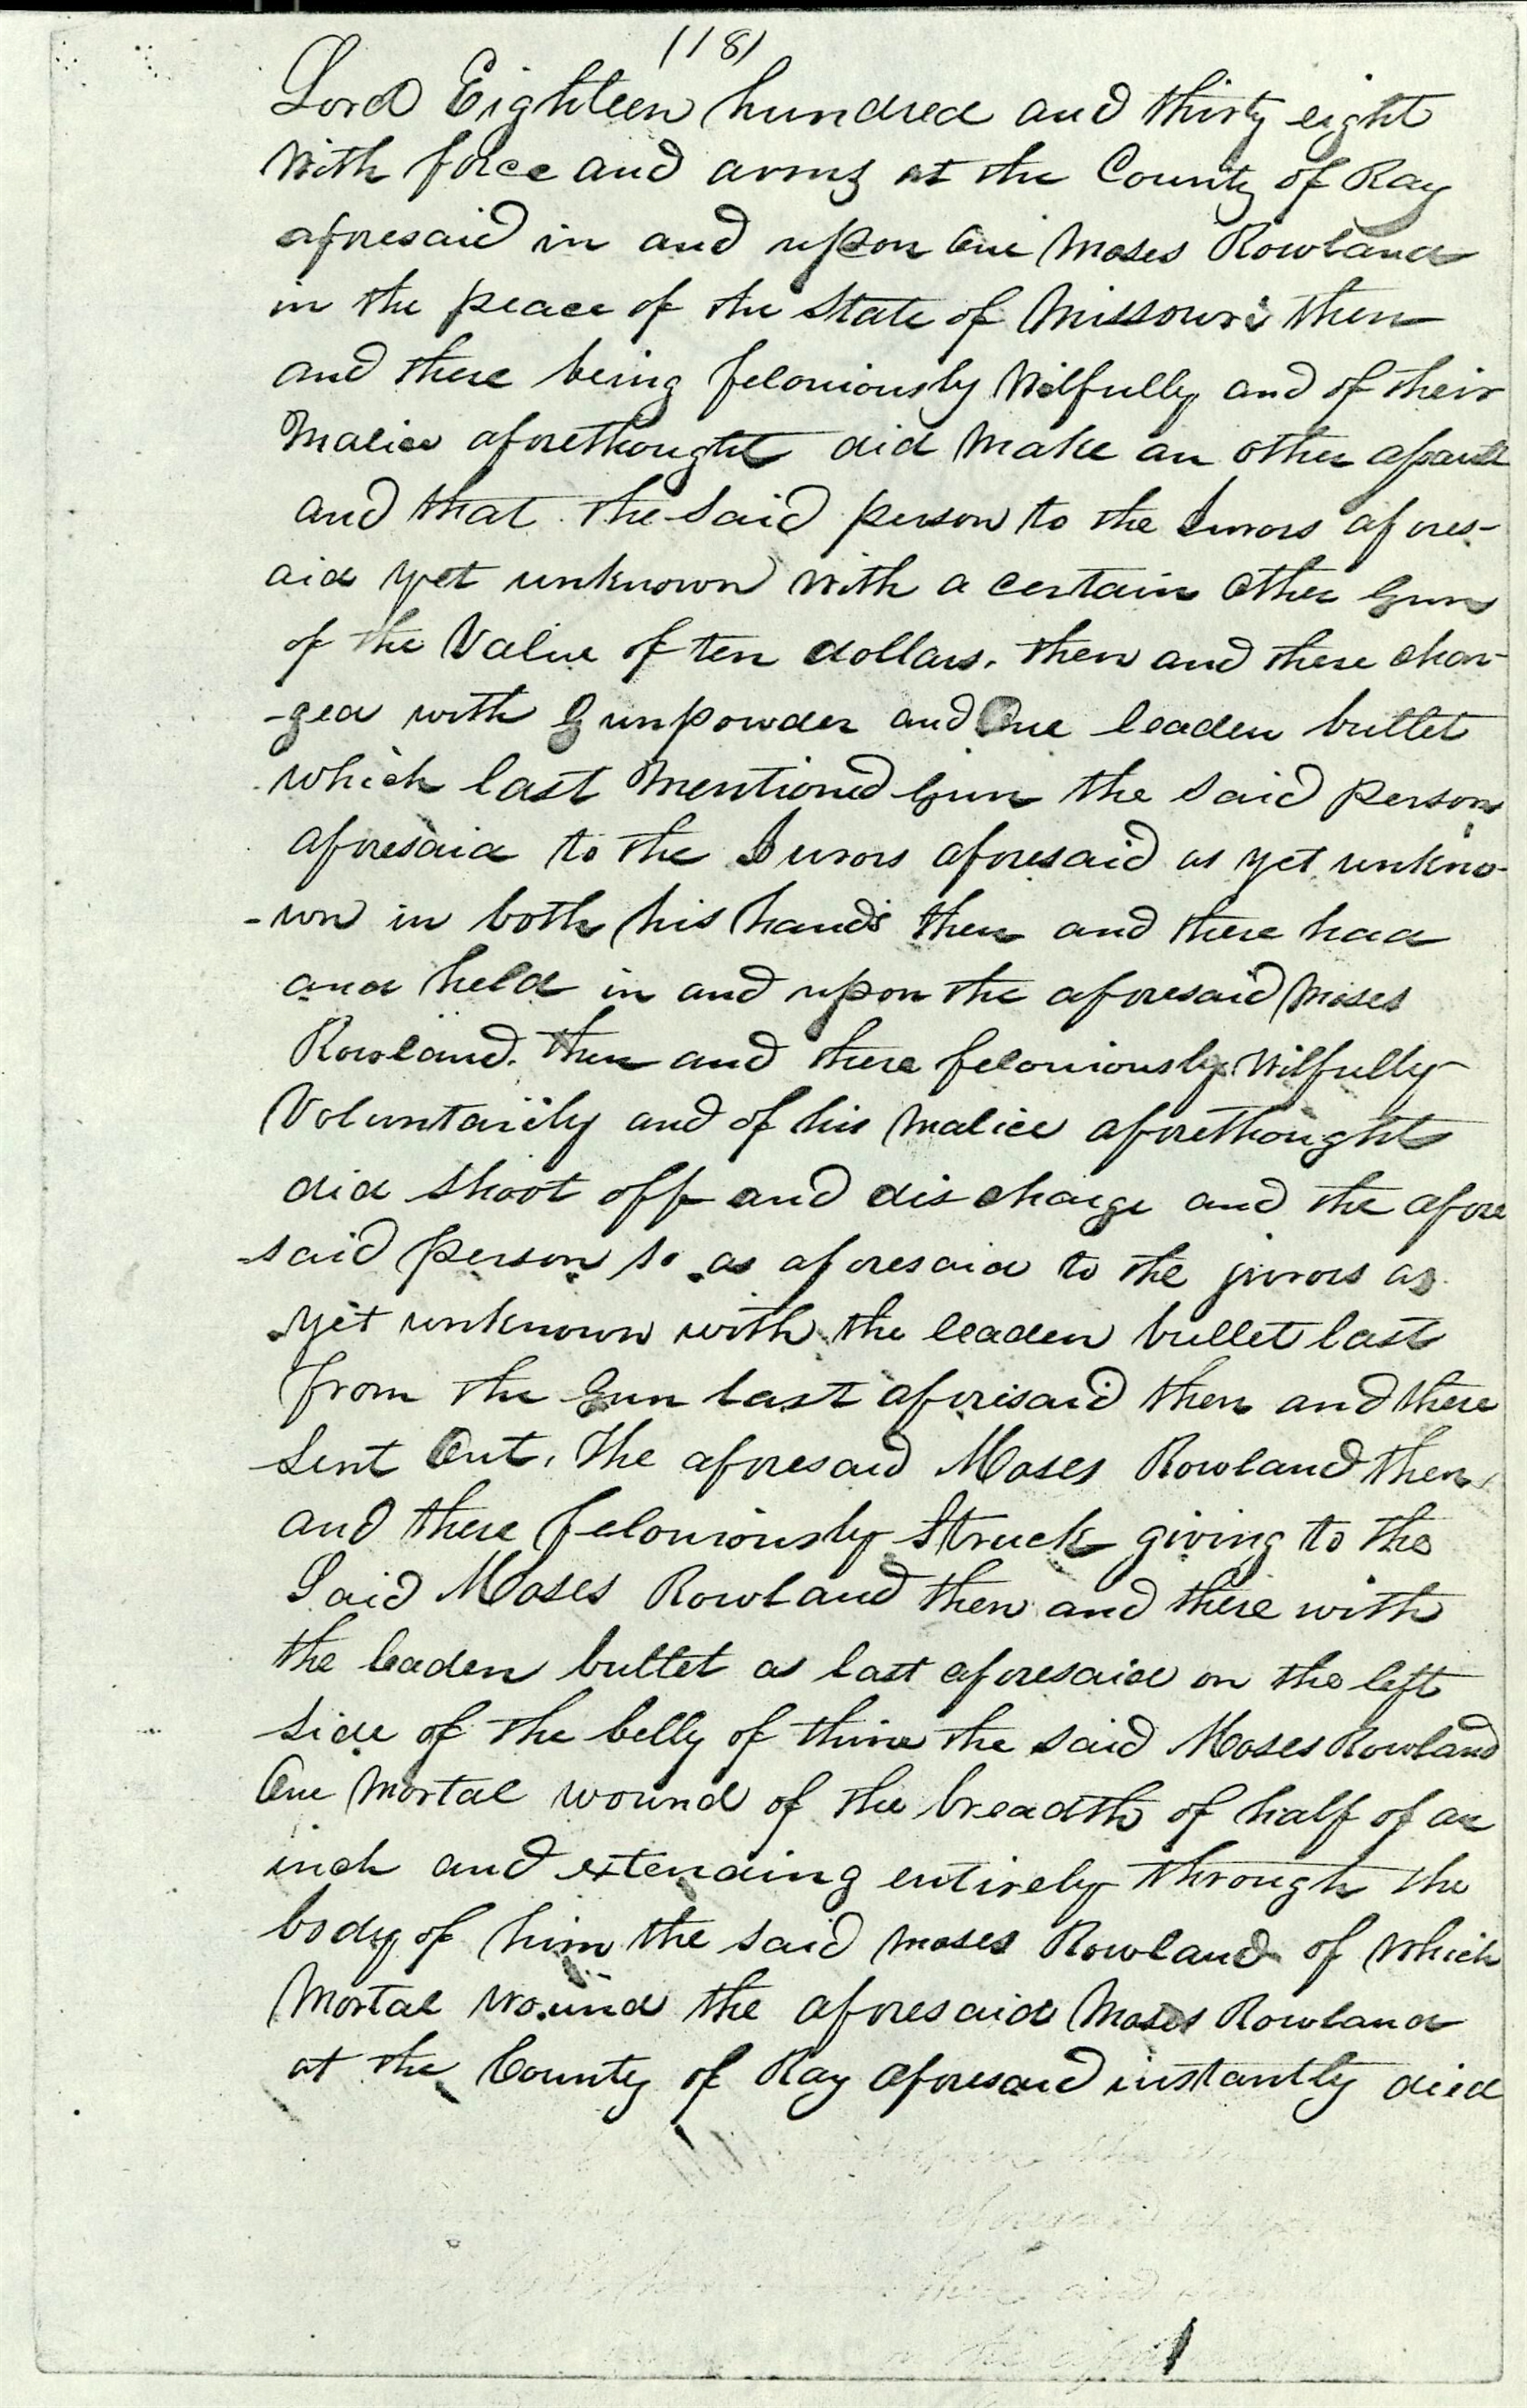 (18)
Lord Eighteen hundred and thirty eight
With force and arms at the County of Ray
aforesaid in and upon One Moses Rowland
in the peace of the State of Missouri then
and there being feloniously Wilfully and of their
Malice aforethought did Make an other
and that the said person to the Jurors afores-
aid yet unknown with a certain other Gun
of the Value of ten dollars. then and there char-
-ged with Gunpowder and One leaden bullet
which last Mentioned Gun the said person
aforesaid to the Jurors aforesaid as yet unkno-
-wn in both his hands then and there had
and held in and upon the aforesaid Moses
Rowland. then and there feloniously Wilfully
Voluntarily and of his Malice aforethought
did shoot off and discharge and the afore
-said person so as aforesaid to the jurors as
yet unknown with the leaden bullet last
from the Gun last aforesaid then and there
Sent Out, the aforesaid Moses Rowland then
and there feloniously Struck giving to the
Said Moses Rowland then and there with
the leaden bullet as last aforesaid on the left
side of the belly of the said Moses Rowland
One Mortal wound of the breadth of half of an
inch and extending entirely through the
body of him the said Moses Rowland of which
Mortal Wound the aforesaid Moses Rowland
at the County of Ray aforesaid instantly died